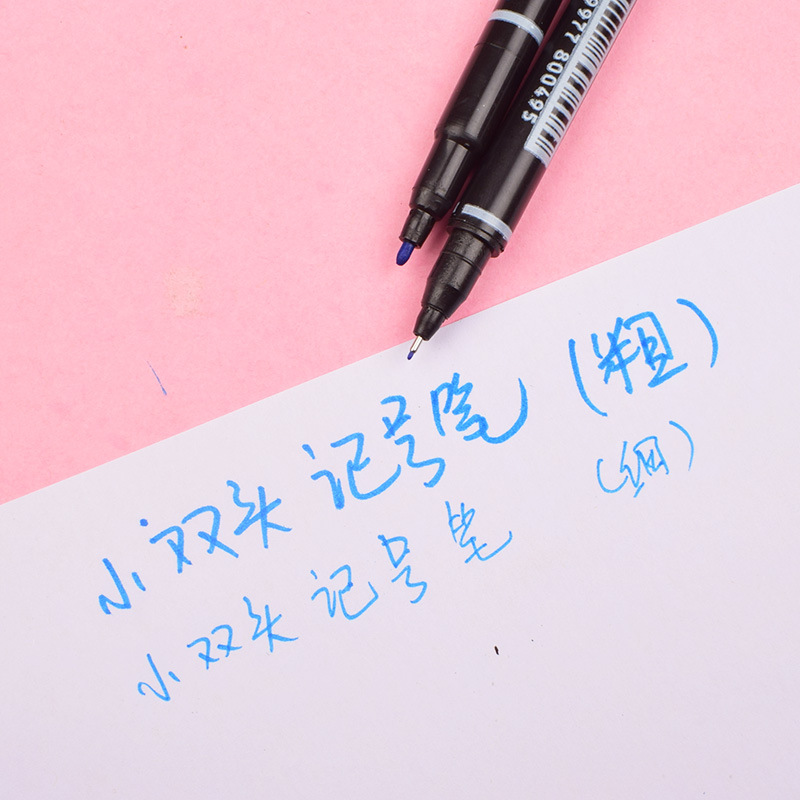 9977 800495
小双头 记号笔 (粗)
小双头 记号笔 (细)